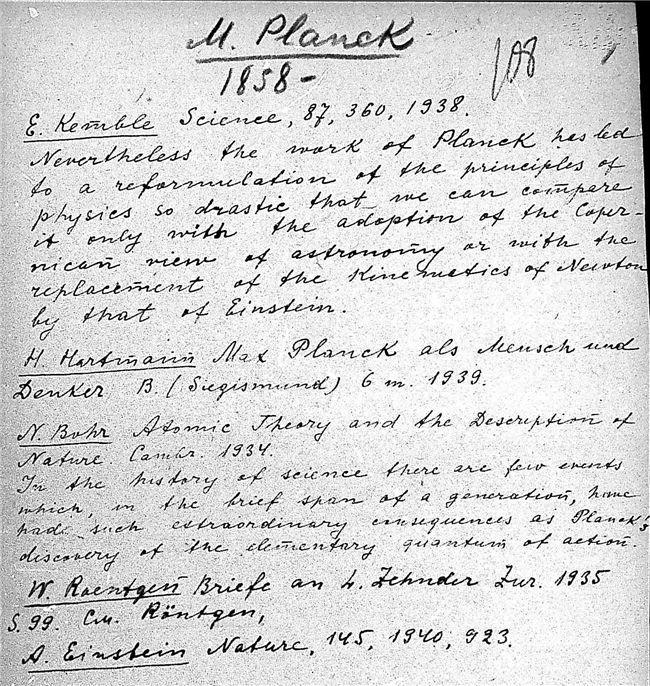 M. Planck
1858 -
108
E. Kemble Science, 87, 360, 1938.
Nevertheless the work of Planck has led
to a reformulation of the principles of
physics so drastic that we can compare
it only with the adoption of the Coper-
nican view of astronomy or with the
replacement of the Kinematics of Newton
by that of Einstein.
H. Hartmann Max Planck als Mensch und
Denker B. (Siegismund) 6 m. 1939.
N. Bohr Atomic Theory and the Description of
Nature. Cambr. 1934.
In the history of science there are few events
which, in the brief span of a generation, have
had such extraordinary consequences as Planck's
discovery of the elementary quantum of action.
W. Roentgen Briefe an L. Zehnder Zur. 1935
S. 99. См. Röntgen,
A. Einstein Nature, 145, 1940, 923.